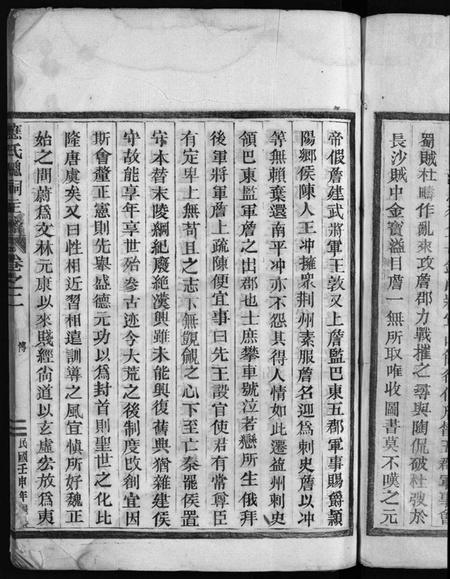 蜀賊杜疇作亂來攻詹郡力戰摧之尋與陶侃破杜弢於
長沙賊中金寶溢目詹一無所取唯收圖書莫不嘆之元
帝假詹建武將軍王敦又上詹監巴東五郡軍事賜爵潁
陽鄉侯陳人王冲擁眾荆州素服詹名迎為刺史詹以冲
等無賴棄還南平冲亦不怨其得人情如此遷益州刺史
領巴東監軍詹之出郡也士庶攀車號泣若戀所生俄拜
後軍將軍詹上疏陳便宜事曰先王設官使君有常尊臣
有定卑上無苟且之志下無覬覦之心下至亡秦罷侯置
守本替末陵綱紀廢絕漢興雖未能興復舊典猶雜建侯
守故能享年享世殆參古迹今大荒之後制度改創宜因
斯會釐正憲則先舉盛德元功以為封首則聖世之化比
隆唐虞矣又曰性相近習相遠訓導之風宜慎所好魏正
始之間蔚為文林元康以來賤經尚道以玄虛宏放為夷
應氏總祠主譜 卷之二
傳
民國壬申年